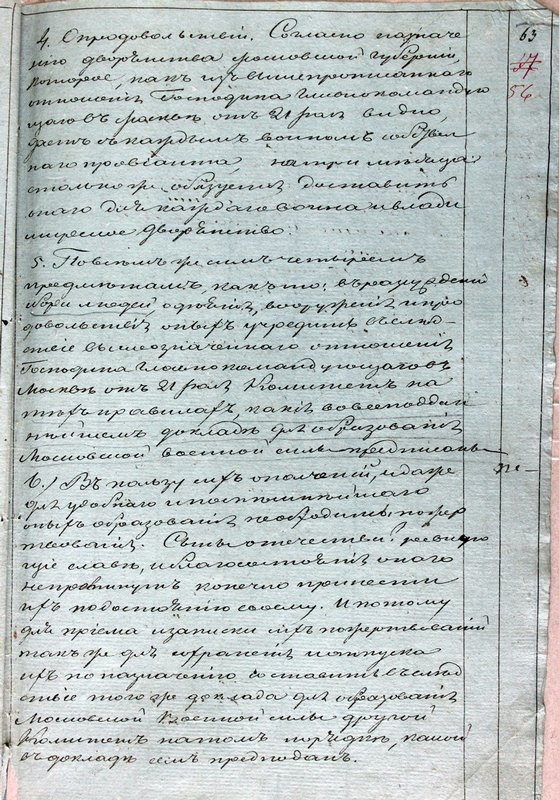 63
17
56
4. О продовольствiи. Согласно назначе
нiю дворянства Московской Губернiи,
которое, какъ изъ вышепрописаннаго
отношенiя Господина Главнокомандую
щаго въ Москвѣ отъ 21 Iюля видно,
даетъ съ каждымъ воиномъ
наго провiанта, на три мѣсяца
столько же обязуется доставить
онаго для каждаго воина и Влади
мирское Дворянство.
5. По всѣмъ же симъ четыремъ
предмѣтамъ, какъ то: въ разсужденiи
сбора людей одѣянiя, вооруженiя и про
довольствiя оныхъ учредить въ слѣд-
ствiе вышеозначеннаго отношенiя
Господина Главнокомандующаго въ
Москвѣ отъ 21 Iюля Комитетъ на
тѣхъ правилахъ, какiя во всеподдан
нѣйшемъ докладѣ для образованiя
Московской военной силы предписаны
6.) Въ пользу сихъ ополченiй, и даже
для удобнаго и поспѣшнѣйшаго
оныхъ образованiя необходимы пожер
твованiя. Сыны отечества! ревную
щiе славѣ, и благосостоянiю онаго
непреминутъ конечно принести
ихъ по достоянiю своему. И потому
для прiема и записки сихъ пожертвованiй
такъ же для храненiя и отпуска
ихъ по назначенiю составить въ слѣд
ствiе того же доклада для образованiя
Московской Военной силы другой
Комитетъ на томъ порядкѣ, какой
въ докладѣ семъ предподанъ.